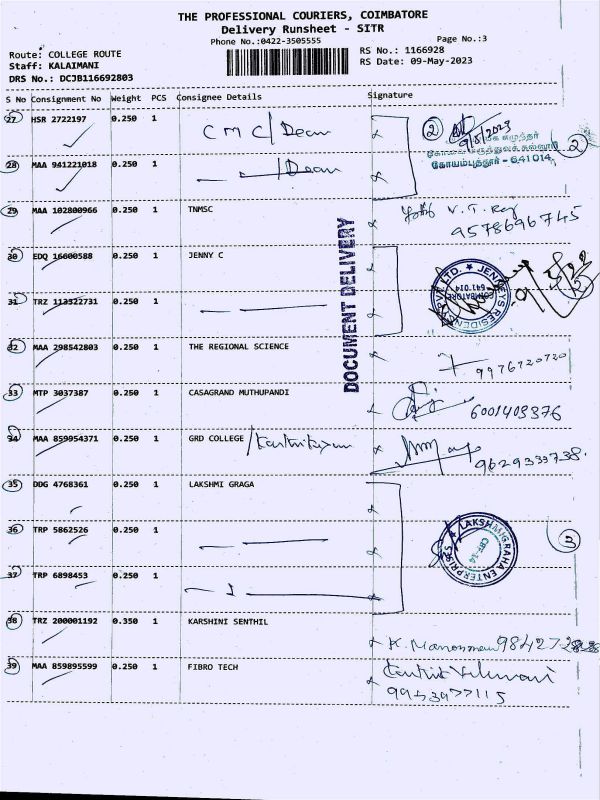 THE PROFESSIONAL COURIERS, COIMBATORE
Delivery Runsheet - SITR
Phone No.:0422-3505555
Page No.:3
Route: COLLEGE ROUTE
RS No.: 1166928
Staff: KALAIMANI
RS Date: 09-May-2023
DRS No.: DCJB116692803
S No Consignment No Weight PCS Consignee Details Signature
27 HSR 2722197 0.250 1 C M C / Dean 2 9/5/2023
28 MAA 941221018 0.250 1 / Dean கோயம்புத்தூர் - 641 014. 2
29 MAA 102800966 0.250 1 TNMSC V. T. Raj
9578696745
30 EDQ 16600588 0.250 1 JENNY C
31 TRZ 113322731 0.250 1
JENNEYS RESIDENCY PVT LTD. COIMBATORE 641 014
DOCUMENT DELIVERY
32 MAA 298542803 0.250 1 THE REGIONAL SCIENCE 9976720720
33 MTP 3037387 0.250 1 CASAGRAND MUTHUPANDI 6001403376
34 MAA 859054371 0.250 1 GRD COLLEGE / Karthikeyan 9629333738.
35 DDG 4768361 0.250 1 LAKSHMI GRAGA
36 TRP 5862526 0.250 1 LAKSHMIGRAHA ENTERPRISES CBE-14 3
37 TRP 6898453 0.250 1
38 TRZ 200001192 0.350 1 KARSHINI SENTHIL
39 MAA 859895599 0.250 1 FIBRO TECH
9953977115